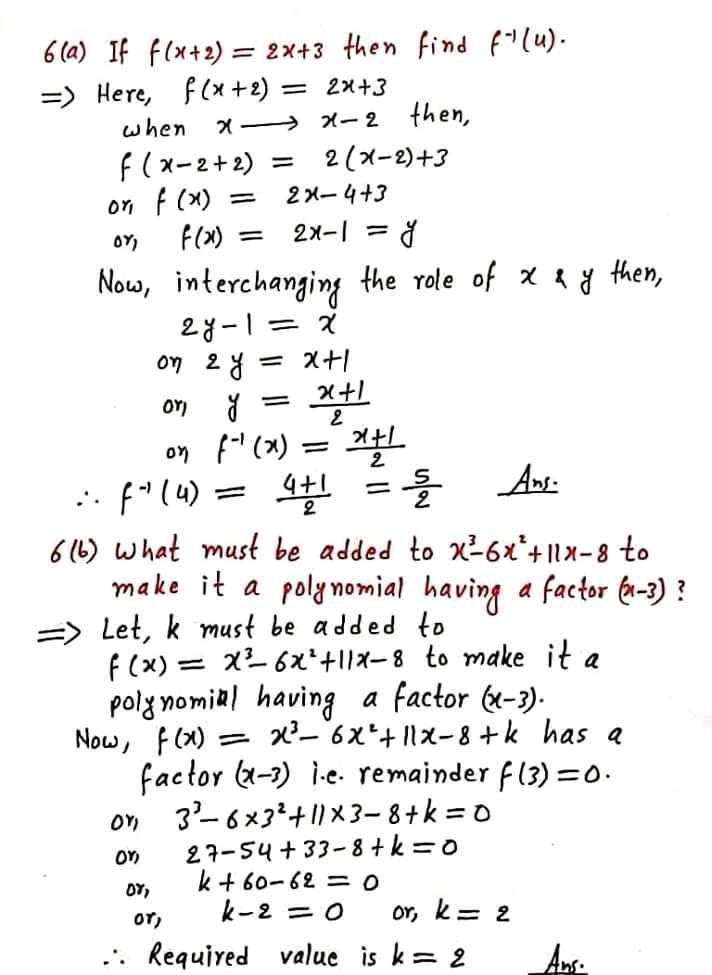 6(a) If f(x+2) = 2x+3 then find f⁻¹(4).
=> Here, f(x+2) = 2x+3
when x ⟶ x-2 then,
f(x-2+2) = 2(x-2)+3
or, f(x) = 2x-4+3
or, f(x) = 2x-1 = y
Now, interchanging the role of x & y then,
2y-1 = x
or, 2y = x+1
or, y = (x+1)/2
or, f⁻¹(x) = (x+1)/2
∴ f⁻¹(4) = (4+1)/2 = 5/2 Ans.
6(b) What must be added to x³-6x²+11x-8 to
make it a polynomial having a factor (x-3) ?
=> Let, k must be added to
f(x) = x³-6x²+11x-8 to make it a
polynomial having a factor (x-3).
Now, f(x) = x³-6x²+11x-8+k has a
factor (x-3) i.e. remainder f(3)=0.
or, 3³-6×3²+11×3-8+k=0
or, 27-54+33-8+k=0
or, k+60-62 = 0
or, k-2 = 0 or, k = 2
∴ Required value is k = 2 Ans.